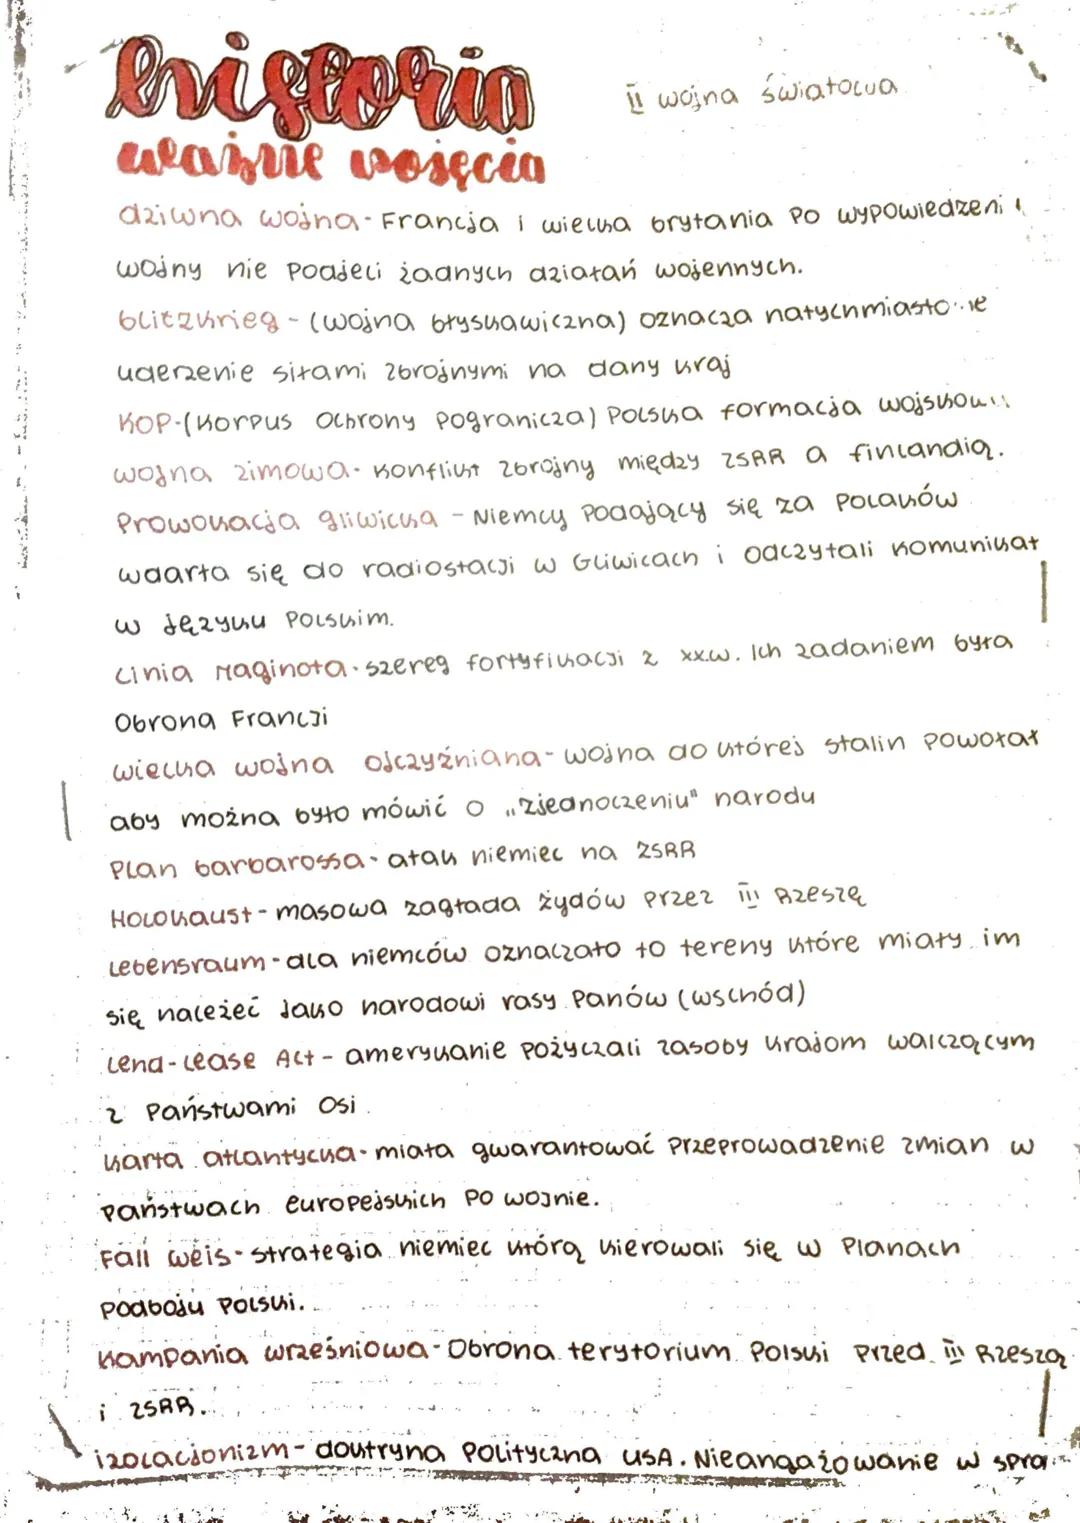 historia
II wojna światowa
ważne pojęcia
dziwna wojna - Francja i wielka brytania po wypowiedzeni
wojny nie podjeli żadnych działań wojennych.
blitzkrieg - (wojna błyskawiczna) oznacza
uderzenie siłami zbrojnymi na dany kraj
KOP - (Korpus Ochrony Pogranicza) Polska formacja
wojna zimowa - konflikt zbrojny między ZSRR a finlandią.
Prowokacja gliwicka - Niemcy podający się za polaków
wdarła się do radiostacji w Gliwicach i odczytali komunikat
w języku polskim.
Linia Maginota - szereg fortyfikacji z xx.w. Ich zadaniem była
Obrona Francji
wielka wojna ojczyźniana - wojna do której stalin powołał
aby można było mówić o „zjednoczeniu" narodu
Plan barbarossa - atak niemiec na ZSRR
Holokaust - masowa zagłada żydów przez III Rzeszę
Lebensraum - dla niemców oznaczało to tereny które miały im
się należeć jako narodowi rasy panów (wschód)
Lend-lease Act - amerykanie pożyczali zasoby krajom walczącym
z państwami Osi.
karta atlantycka - miała gwarantować przeprowadzenie zmian w
państwach europejskich po wojnie.
Fall weis - strategia niemiec którą kierowali się w planach
podboju polski.
kampania wrześniowa - Obrona terytorium Polski przed III Rzeszą
i ZSRR.
izolacjonizm - doktryna polityczna USA. Nieangażowanie w